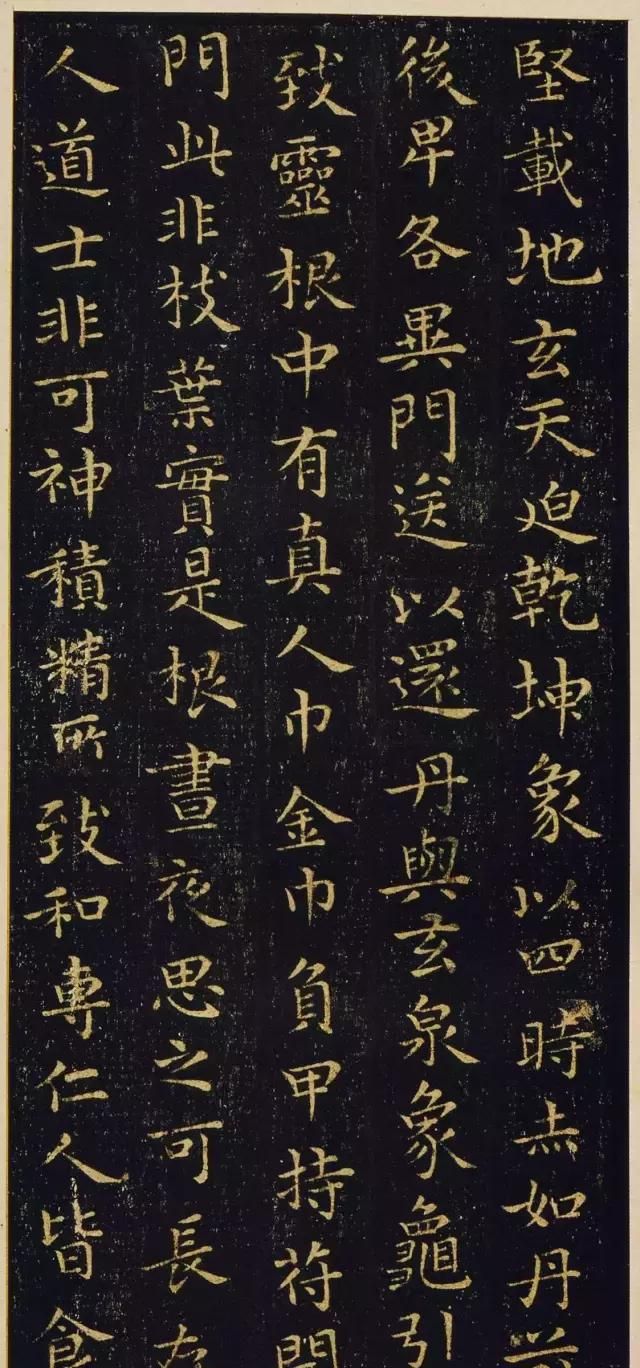 堅載地玄天迫乾坤象以四時赤如丹
後卑各異門送以還丹與玄泉象龜引
致靈根中有真人巾金巾負甲持符開
門此非枝葉實是根晝夜思之可長存
人道士非可神積精所致和專仁人皆食